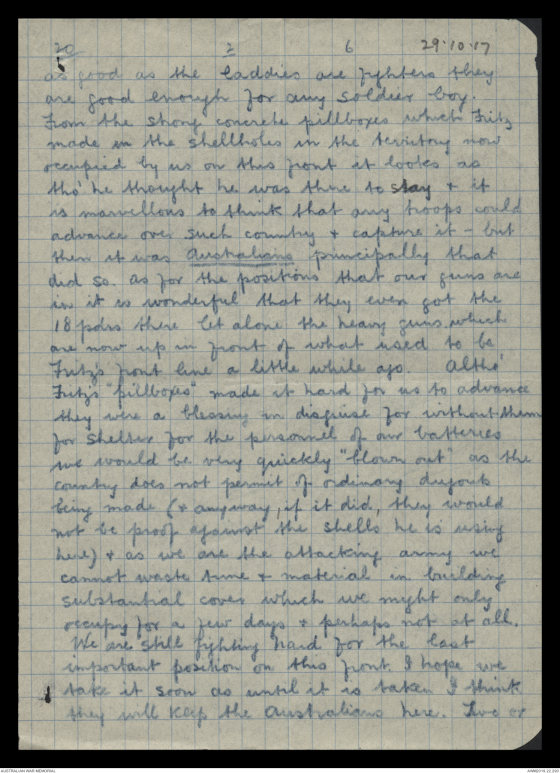 20 2 6 29.10.17
as good as the laddies are fighters they
are good enough for any soldier boy.
From the strong concrete pillboxes which Fritz
made in the shellholes in the territory now
occupied by us on this front it looks as
tho' he thought he was there to stay & it
is marvellous to think that any troops could
advance over such country & capture it - but
then it was Australians principally that
did so. As for the positions that our guns are
in it is wonderful that they even got the
18 pdrs there let alone the heavy guns which
are now up in front of what used to be
Fritz's front line a little while ago. Altho'
Fritz's "pillboxes" made it hard for us to advance
they were a blessing in disguise for without them
for shelter for the personnel of our batteries
we would be very quickly "blown out" as the
country does not permit of ordinary dugouts
being made (& anyway, if it did, they would
not be proof against the shells he is using
here) & as we are the attacking army we
cannot waste time & material in building
substantial cover which we might only
occupy for a few days & perhaps not at all.
We are still fighting hard for the last
important position on this front. I hope we
take it soon as until it is taken I think
they will keep the Australians here. Two or
AUSTRALIAN WAR MEMORIAL